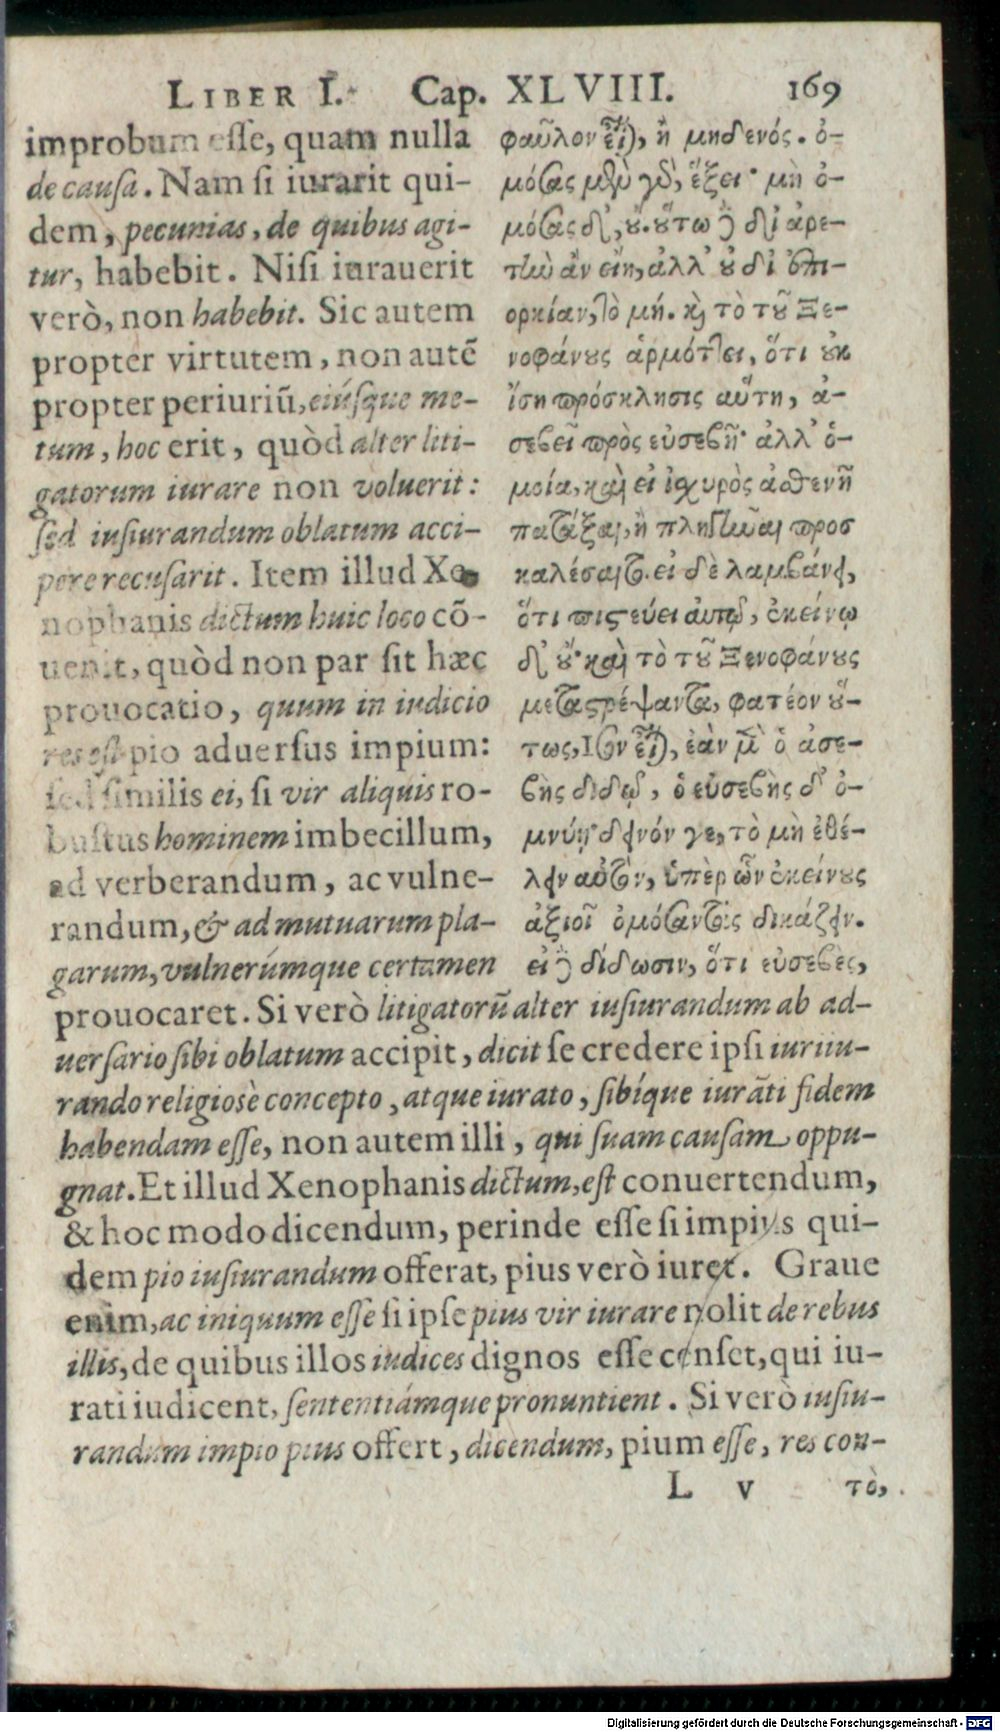 LIBER I. Cap. XLVIII. 169
improbum esse, quam nulla
de causa. Nam si iurarit qui-
dem, pecunias, de quibus agi-
tur, habebit. Nisi iurauerit
verò, non habebit. Sic autem
propter virtutem, non autē
propter periuriū, eiúsque me-
tum, hoc erit, quòd alter liti-
gatorum iurare non voluerit:
sed iusiurandum oblatum acci-
pere recusarit. Item illud Xe-
nophanis dictum huic loco cō-
uenit, quòd non par sit hæc
prouocatio, quum in iudicio
res est pio aduersus impium:
sed similis ei, si vir aliquis ro-
bustus hominem imbecillum,
ad verberandum, ac vulne-
randum, & ad mutuarum pla-
garum, vulnerúmque certamen
φαῦλον εἶ), ἢ μηδενός. ὀ-
μόσας μὲν γὸ, ἕξει· μὴ ὀ-
μόσας δὲ, ȣ̓. ȣ̔́τω ἢ δι' ἀρε-
τἰὼ ἂν εἴη, ἀλλ' ȣ̓ δι' ἐπι-
ορκίαν, τὸ μή. κ̀ τὸ τȣ̃ Ξε-
νοφάνȣς ἁρμότ]ει, ὅτι ȣ̓κ
ἴση πρόσκλησις αὕτη, ἀ-
σεβεῖ πρὸς εὐσεβῆ· ἀλλ' ὁ-
μοία, καὶ εἰ ἰσχυρὸς ἀσθενῆ
πατάξαι, ἢ πληγἰῶαι προσ
καλέσαιτο. εἰ δὲ λαμβάνει,
ὅτι πιστεύει αὑτῷ, ἐκείνῳ
δ' ȣ̓́· καὶ τὸ τȣ̃ Ξενοφάνȣς
μεταστρέψαντα, φατέον ȣ̔́-
τως, ἴσον εἶ), ἐὰν μ̄ ὁ ἀσε-
βὴς διδῷ, ὁ εὐσεβὴς δ' ὀ-
μνύῃ· δεινόν γε, τὸ μὴ ἐθέ-
λειν αὐτὸν, ὑπὲρ ὧν ἐκείνȣς
ἀξιοῖ ὀμόσαντας δικάζειν.
εἰ ἢ δίδωσιν, ὅτι εὐσεβὲς,
prouocaret. Si verò litigatorū alter iusiurandum ab ad-
uersario sibi oblatum accipit, dicit se credere ipsi iuriiu-
rando religiosè concepto, atque iurato, sibíque iurāti fidem
habendam esse, non autem illi, qui suam causam oppu-
gnat. Et illud Xenophanis dictum, est conuertendum,
& hoc modo dicendum, perinde esse si impius qui-
dem pio iusiurandum offerat, pius verò iuret. Graue
enim, ac iniquum esse si ipse pius vir iurare nolit de rebus
illis, de quibus illos iudices dignos esse censet, qui iu-
rati iudicent, sententiámque pronuntient. Si verò iusiu-
randum impio pius offert, dicendum, pium esse, res con-
L v τὸ,
Digitalisierung gefördert durch die Deutsche Forschungsgemeinschaft - DFG